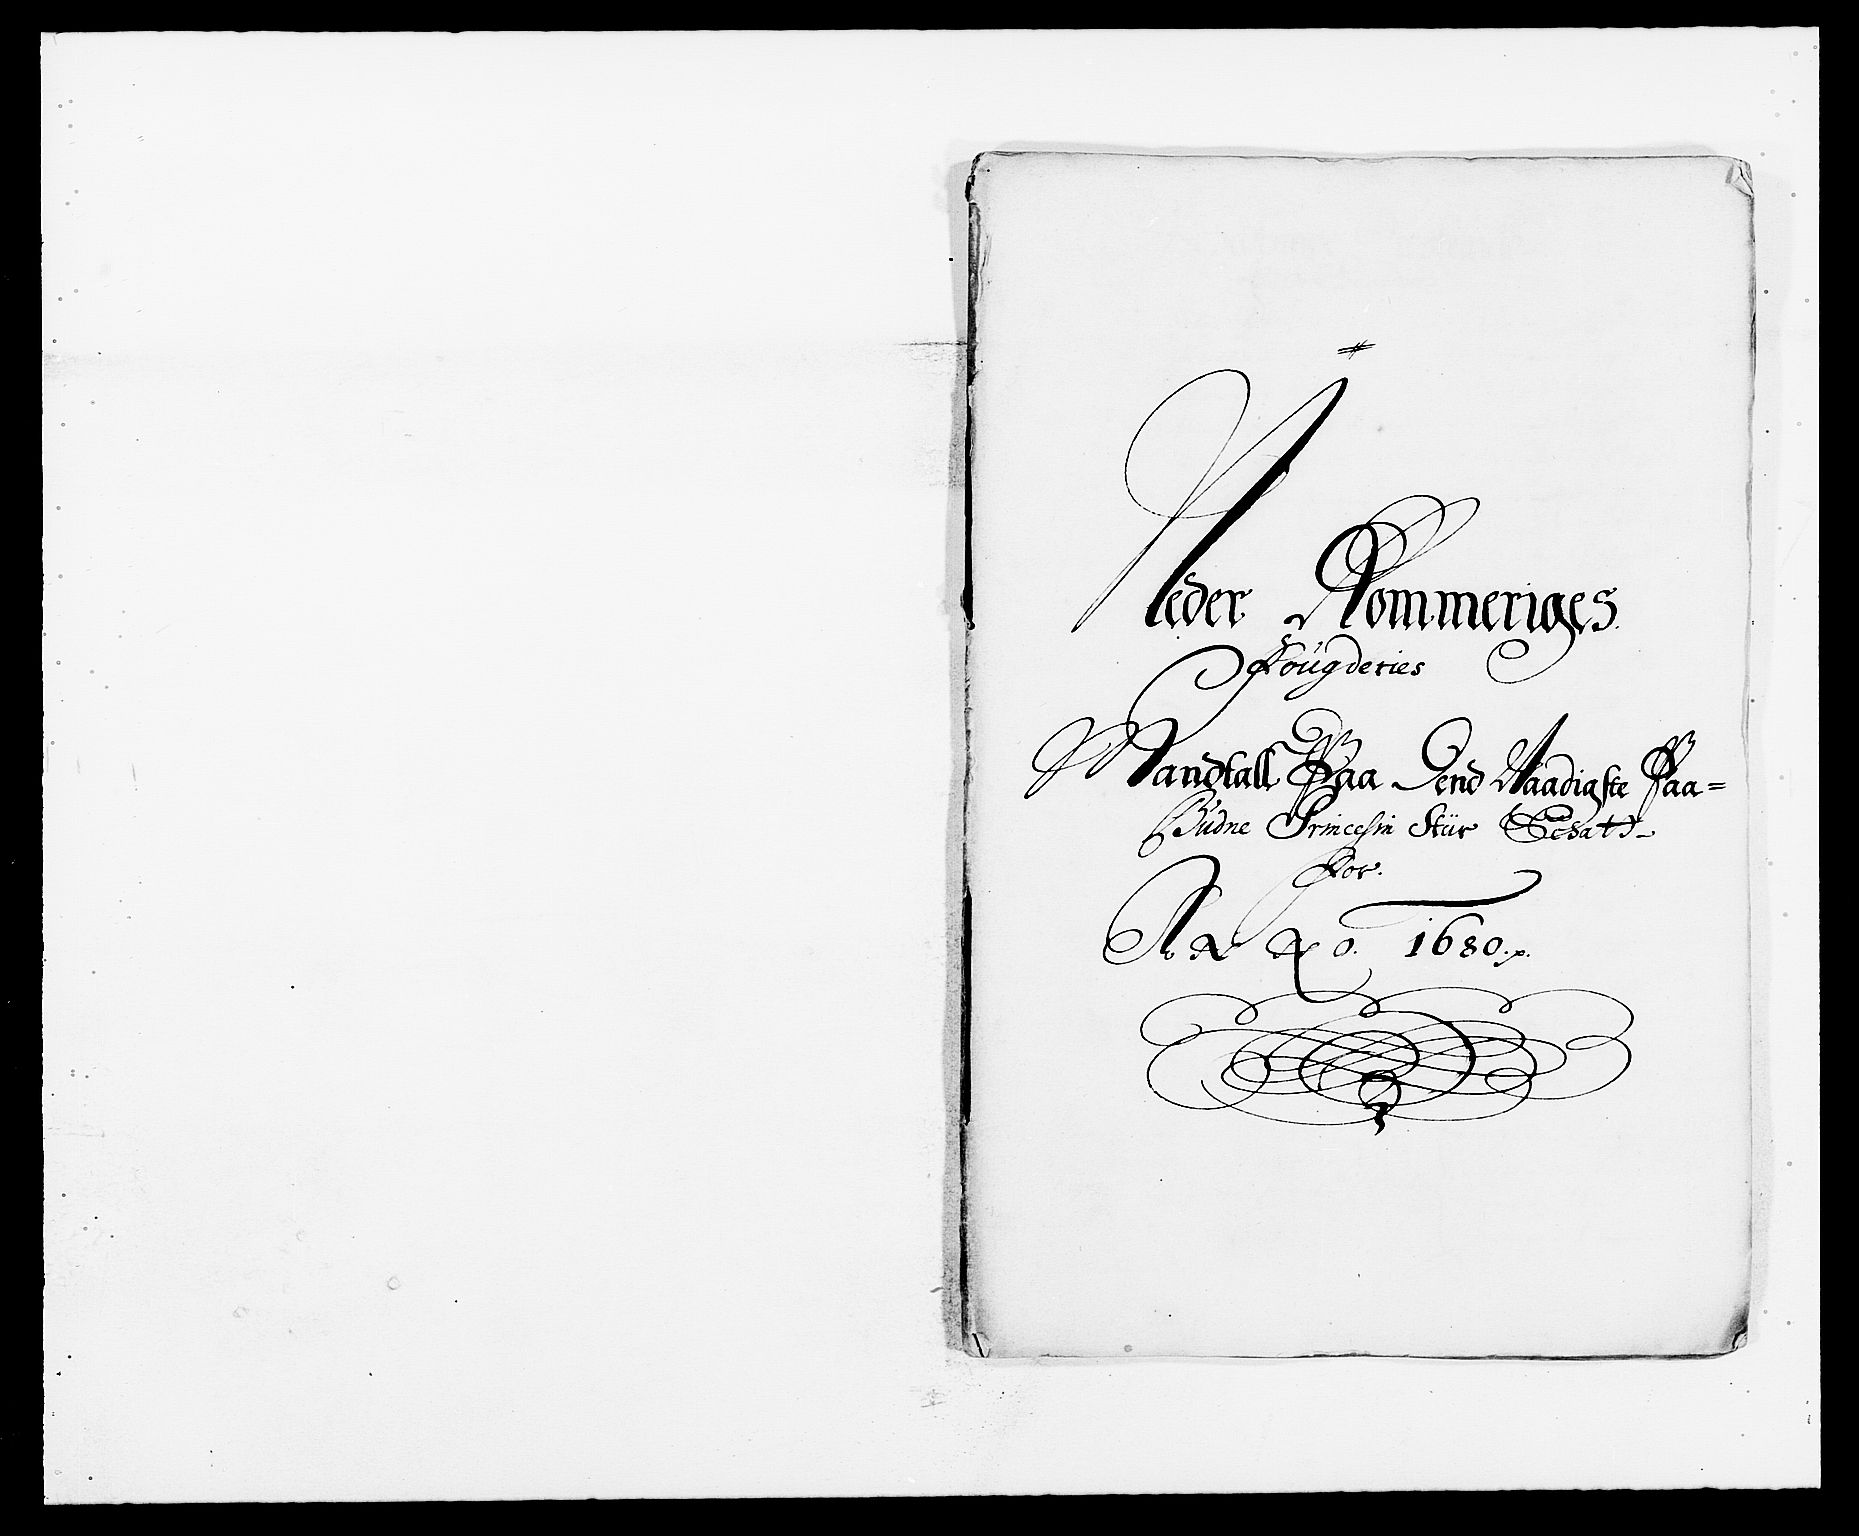 Neder Rommeriges
Fougderies
Mandtall Paa Dend Naadigste Paa=
Budne Princesin Stür Schatt
For.
Anno. 1680.